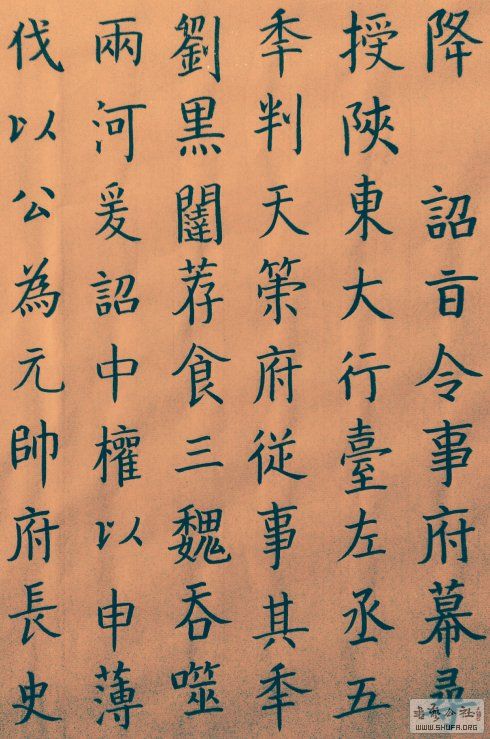 降 詔旨令事府幕尋
授陝東大行臺左丞五
年判天策府従事其年
劉黒闥荐食三魏吞噬
兩河爰詔中權以申薄
伐以公為元帥府長史
WWW.SHUFA.ORG